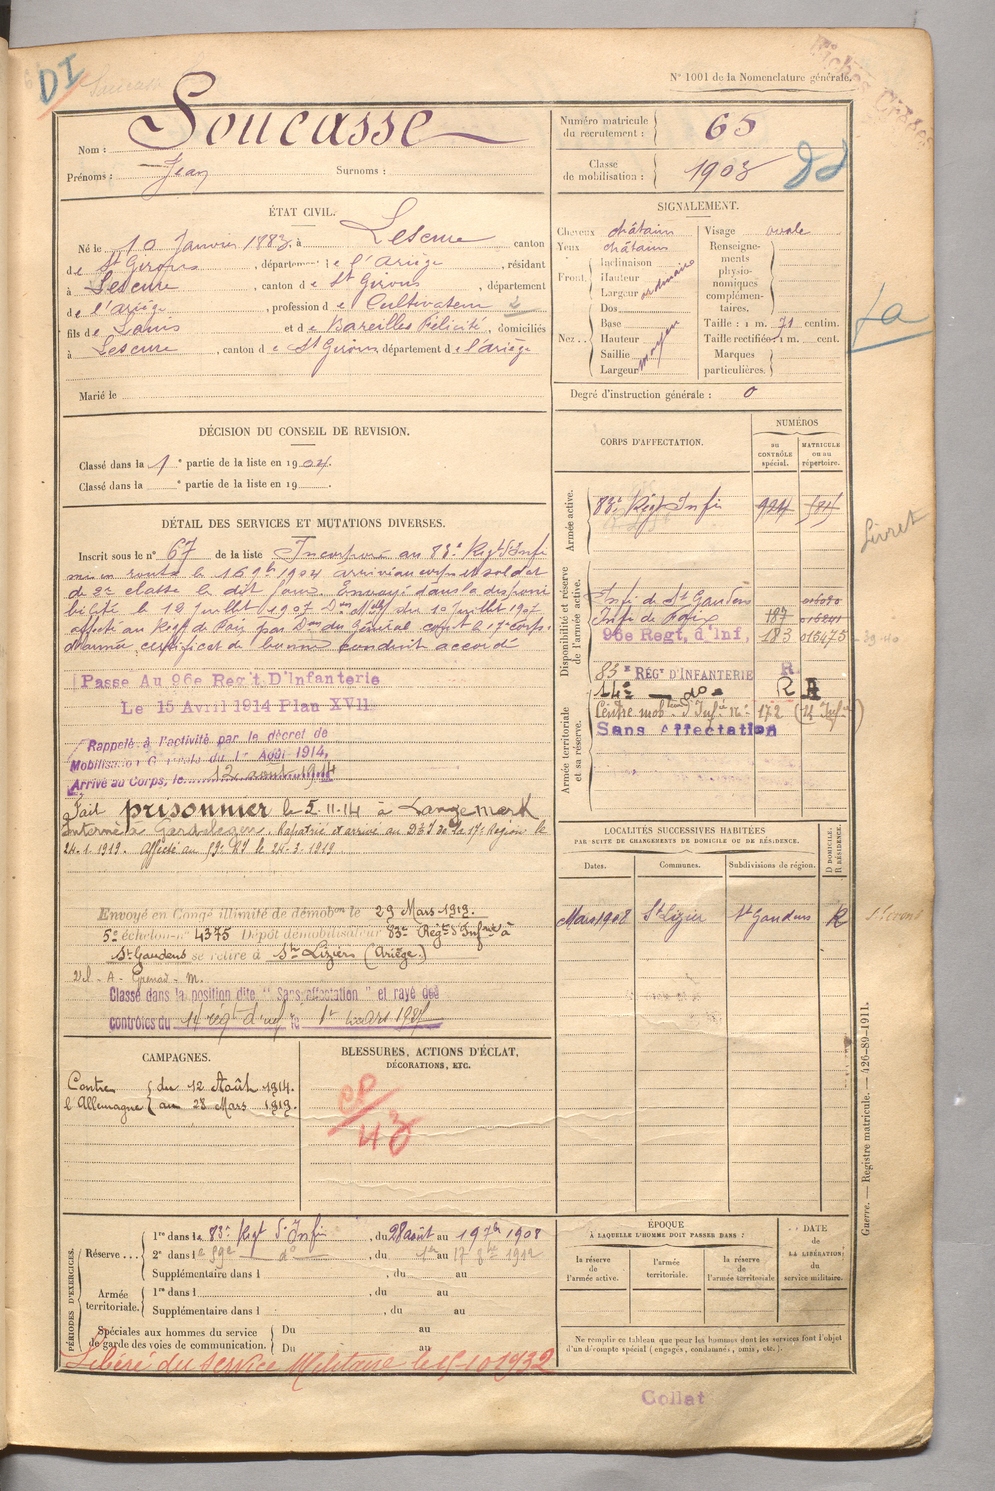 DI
N° 1001 de la Nomenclature générale.
Nom : Soucasse
Prénoms : Jean Surnoms :
Numéro matricule du recrutement : 65
Classe de mobilisation : 1903
ÉTAT CIVIL.
Né le 10 Janvier 1883, à Lescure canton
de St Girons, département de l'Ariège, résidant
à Lescure, canton de St Girons, département
de l'Ariège, profession de Cultivateur
fils de Louis et de Bareilles Félicité, domiciliés
à Lescure, canton de St Girons, département de l'Ariège
Marié le
SIGNALEMENT.
Cheveux châtains
Yeux châtains
Front. Inclinaison
Hauteur
Largeur ordinaire
Nez... Dos
Base
Hauteur
Saillie
Largeur moyen
Visage ovale
Renseignements physionomiques complémentaires.
Taille : 1 m. 71 centim.
Taille rectifiée : 1 m. cent.
Marques particulières.
Degré d'instruction générale : 0
La
DÉCISION DU CONSEIL DE REVISION.
Classé dans la 1e partie de la liste en 1904.
Classé dans la e partie de la liste en 19 .
CORPS D'AFFECTATION.
NUMÉROS
au CONTRÔLE spécial.
MATRICULE ou au répertoire.
Armée active.
83e Régt Infie 924
Livret
Disponibilité et réserve de l'armée active.
Infie de St Gaudens
Infie de Foix 187
96e Regt, d'Inf, 183 015475
Armée territoriale et sa réserve.
83e RÉGt D'INFANTERIE R.
14e — do — R
Centre mobon d'Infie No 172
Sans Affectation
DÉTAIL DES SERVICES ET MUTATIONS DIVERSES.
Inscrit sous le n° 67 de la liste Incorporé au 83e Régt d'Infie
mis en route le 16 9bre 1904 arrivé au corps et soldat
de 2e classe le dit jour. Envoyé dans la disponi
bilité le 12 Juillet 1907 Don Mlle du 10 Juillet 1907
affecté au Régt de Foix par Don du Général comt le 17e corps
d'armée certificat de bonne conduite accordé
Passe Au 96e Reg't D'Infanterie
Le 15 Avril 1914 Plan XVII
Rappelé à l'activité par le décret de
Mobilisation Générale du 1er Août 1914,
Arrivé au Corps, le 12 août 1914
Fait prisonnier le 5.11.14 à Langemark
Interné à Gardelegen. Rapatrié et arrivé au la 17e Région le
24.1.1919. Affecté au RI le 24.3.1919
Envoyé en Congé illimité de démobon le 29 Mars 1919.
5e échelon n° 4375 Dépôt démobilisateur 83e Régt d'Infrie à
St Gaudens se retire à St Liziers (Ariège.)
Classé dans la position dite "Sans affectation" et rayé des
contrôles du 14 régt d'inf le 1er Mars 1927
LOCALITÉS SUCCESSIVES HABITÉES
PAR SUITE DE CHANGEMENTS DE DOMICILE OU DE RÉSIDENCE.
Dates.
Communes.
Subdivisions de région.
D DOMICILE. R RÉSIDENCE.
Mars 1908 St Lizier St Gaudens R
CAMPAGNES.
Contre l'Allemagne { du 12 Août 1914.
au 28 Mars 1919.
BLESSURES, ACTIONS D'ÉCLAT,
DÉCORATIONS, ETC.
PÉRIODES D'EXERCICES.
Réserve... 1re dans le 83e Régt d'Infie, du 28 août au 19 7bre 1908
2e dans le 59e do, du 1er au 17 8bre 1912
Supplémentaire dans l , du au
Armée territoriale. 1re dans l , du au
Supplémentaire dans l , du au
Spéciales aux hommes du service de garde des voies de communication. Du au
Du au
Libéré du service Militaire le 15-10-1932
ÉPOQUE
À LAQUELLE L'HOMME DOIT PASSER DANS :
la réserve de l'armée active.
l'armée territoriale.
la réserve de l'armée territoriale
DATE de LA LIBÉRATION du service militaire.
Ne remplir ce tableau que pour les hommes dont les services font l'objet
d'un décompte spécial (engagés, condamnés, omis, etc.).
Guerre. — Registre matricule. — 426-89-1911.
Collat